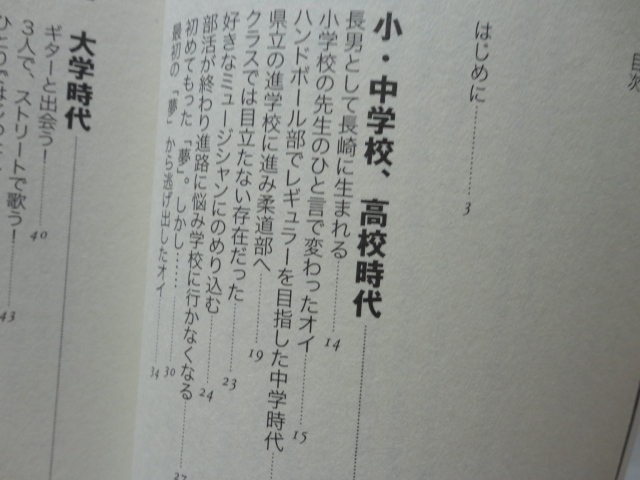 目次
はじめに………3
小・中学校、高校時代
長男として長崎に生まれる………14
小学校の先生のひと言で変わったオイ………15
ハンドボール部でレギュラーを目指した中学時代
県立の進学校に進み柔道部へ………19
クラスでは目立たない存在だった………23
好きなミュージシャンにのめり込む………24
部活が終わり進路に悩み学校に行かなくなる………27
初めてもった「夢」。しかし………30
最初の「夢」から逃げ出したオイ………34
大学時代
ギターと出会う!………40
3人で、ストリートで歌う!………43